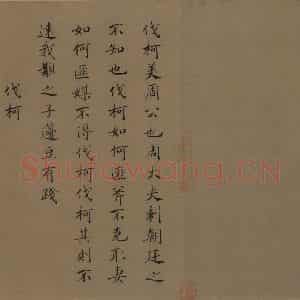 伐柯美周公也周大夫刺朝廷之
不知也伐柯如何匪斧不克取妻
如何匪媒不得伐柯伐柯其則不
遠我覯之子籩豆有踐
伐柯
Shufawang.CN